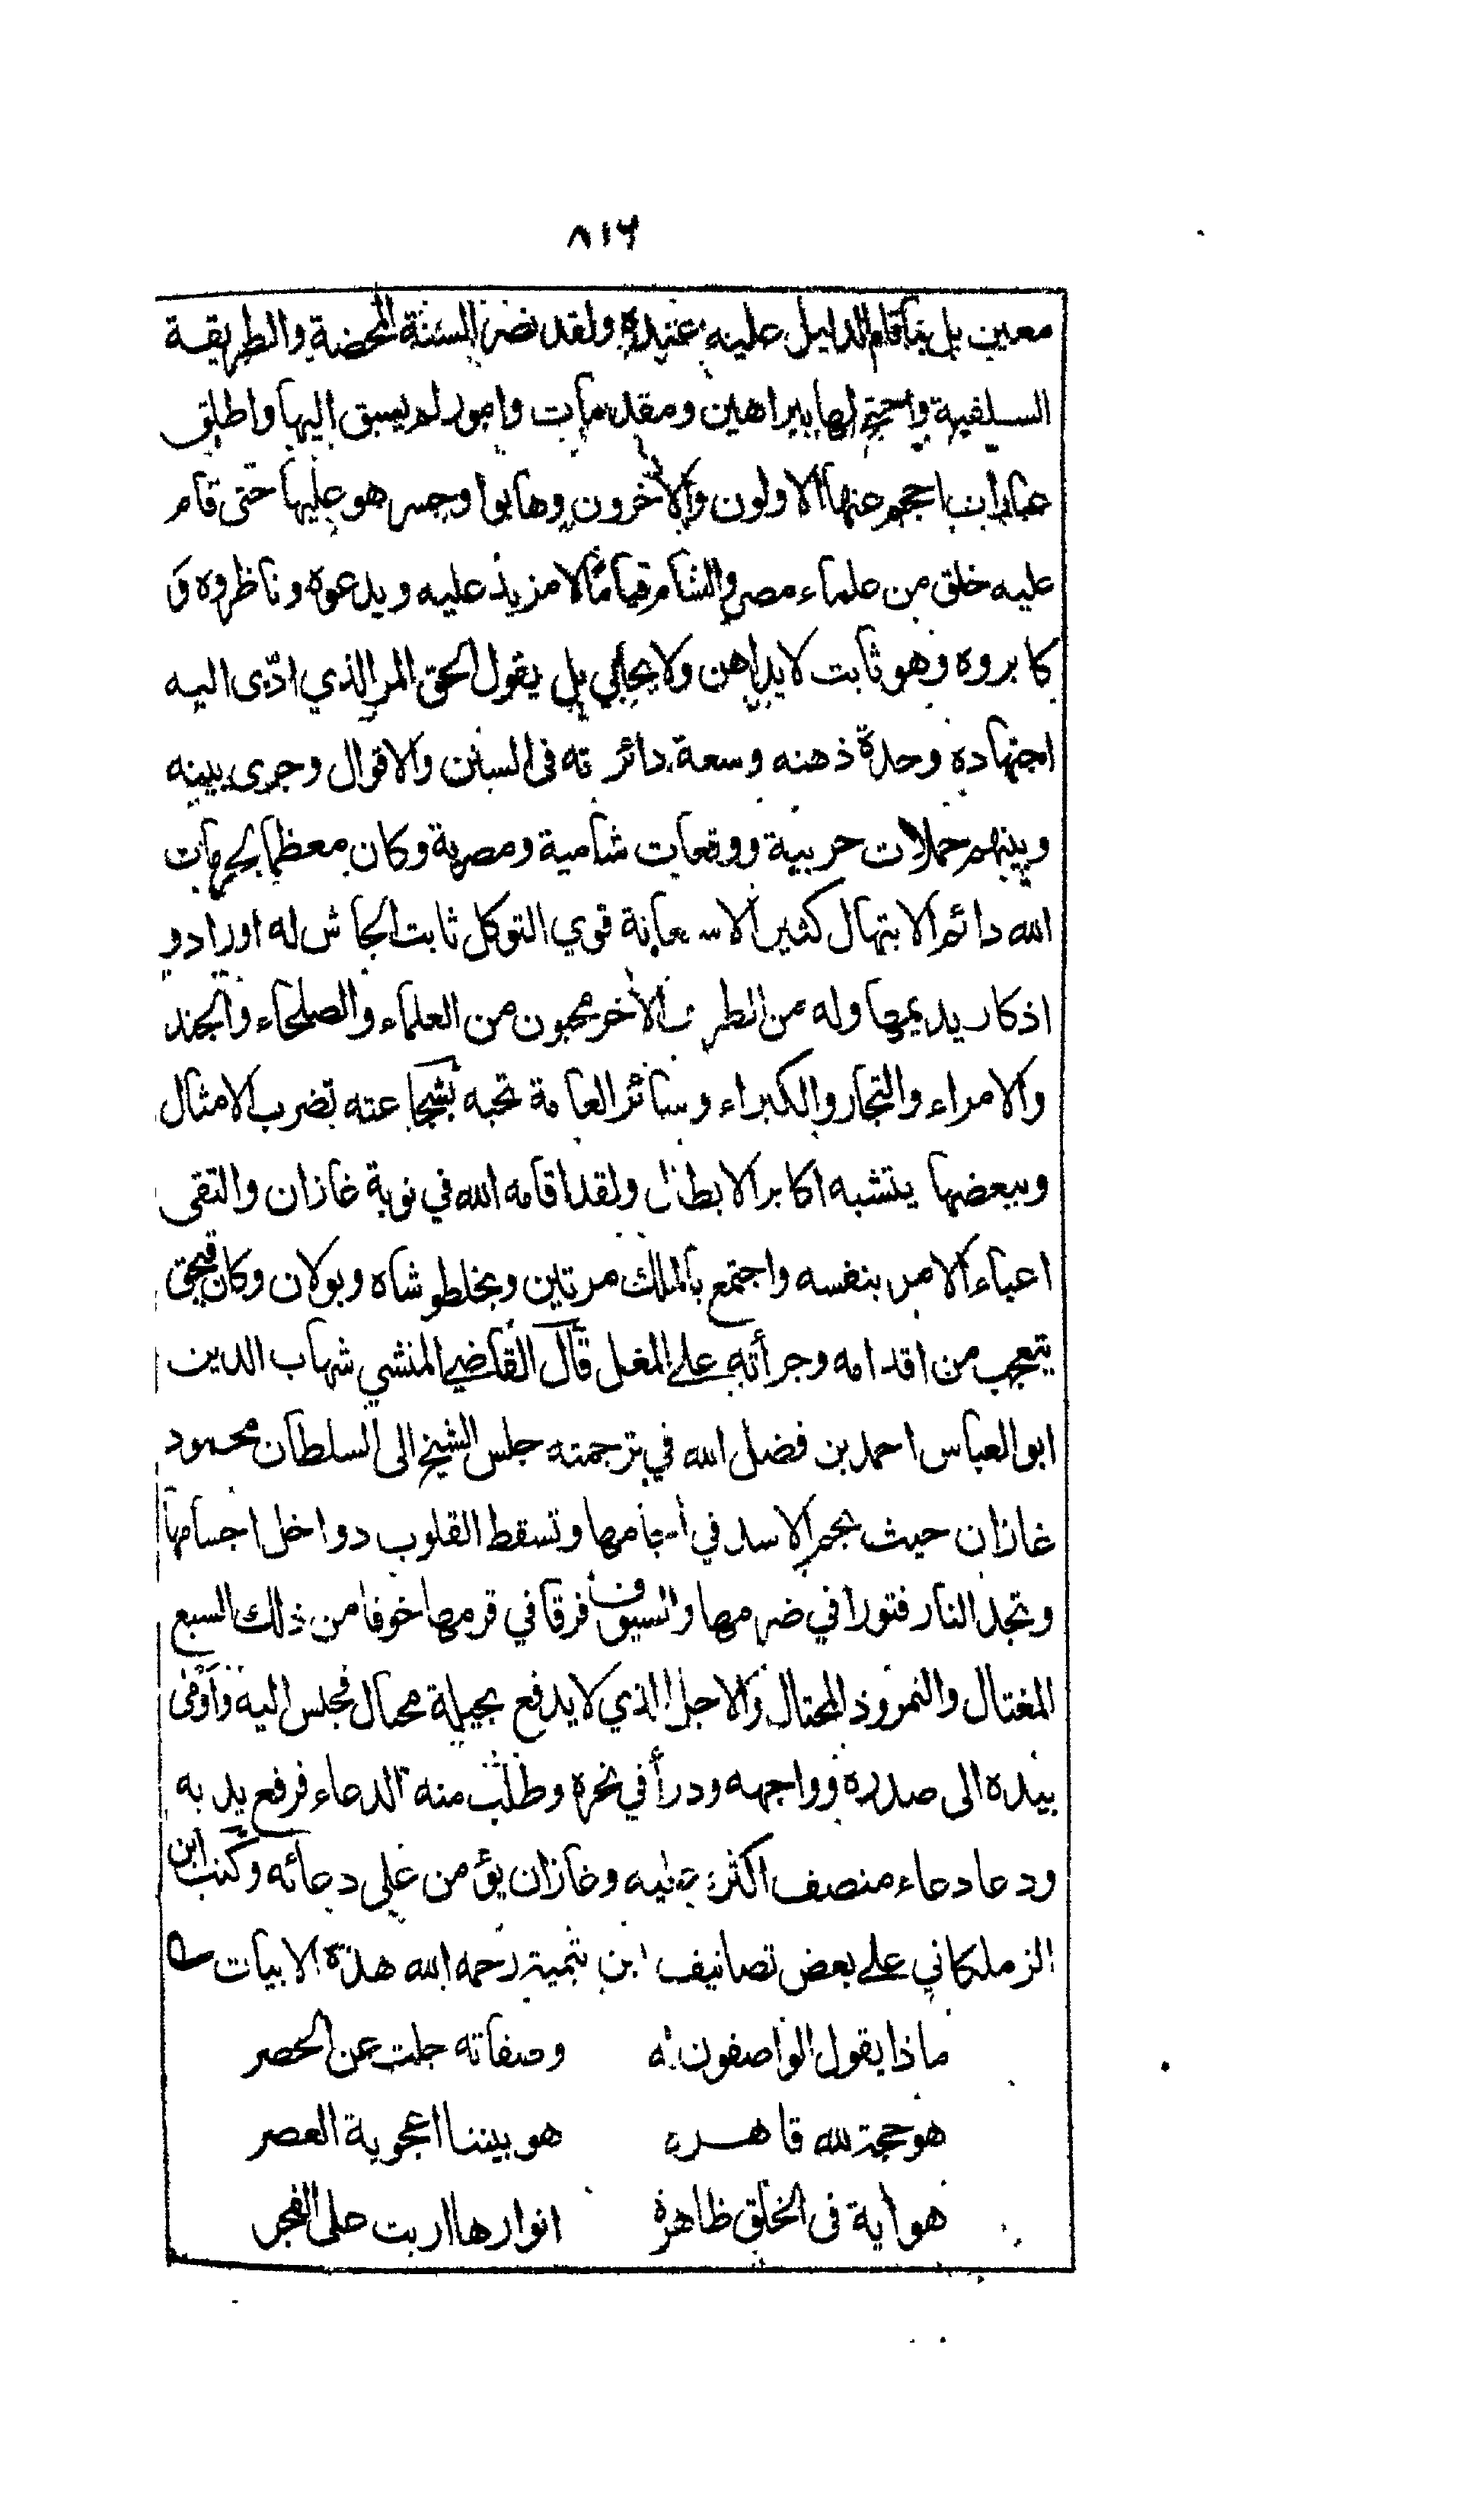 ٨١٦
معين بل بما قام الدليل عليه عنده ولقد نصر السنة المحضة والطريقة
السلفية واحتج لها ببراهين ومقدمات وامور لم يسبق اليها واطلق
عبارات احجم عنها الاولون والاخرون وهابوا وجسر هو عليها حتى قام
عليه خلق من علماء مصر والشام قياما لا مزيد عليه وبدعوه وناظروه و
كابروه وهو ثابت لا يداهن ولا يحابي بل يقول الحق المر الذي ادّى اليه
اجتهاده وحدة ذهنه وسعة دائرته فى السنن والاقوال وجرى بينه
وبينهم حملات حربية ووقعات شامية ومصرية وكان معظما لحرمات
الله دائم الابتهال كثير الاستعانة قوي التوكل ثابت الجاش له اوراد و
اذكار يديمها وله من الطرف الاخر محبون من العلماء والصلحاء والجند
والامراء والتجار والكبراء وسائر العامة تحبه بشجاعته تضرب الامثال
وببعضها يتشبه اكابر الابطال ولقد اقامه الله في نوبة غازان والتقى
اعباء الامر بنفسه واجتمع بالملك مرتين وبخلطو شاه وبولان وكان قبجق
يتعجب من اقدامه وجرأته على المغل قال القاضي المنشي شهاب الدين
ابو العباس احمد بن فضل الله في ترجمته جلس الشيخ الى السلطان محمود
غازان حيث تجم الاسد في اجامها وتسقط القلوب دواخل اجسامها
وتجد النار فتورا في ضرمها والسيوف فرقا في قرمها خوفا من ذلك السبع
المغتال والنمروذ المحتال والاجل الذي لا يدفع بحيلة محتال فجلس اليه واومى
بيده الى صدره وواجهه ودرأ في نحره وطلب منه الدعاء فرفع يديه
ودعا دعاء منصف اكثره عليه وغازان يؤمن على دعائه وكتب ابن
الزملكاني على بعض تصانيف ابن تيمية رحمه الله هذه الابيات
ماذا يقول الواصفون له وصفاته جلت عن الحصر
هو حجة لله قاهره هو بيننا اعجوبة العصر
هو اية فى الخلق ظاهرة انوارها اربت على الفجر